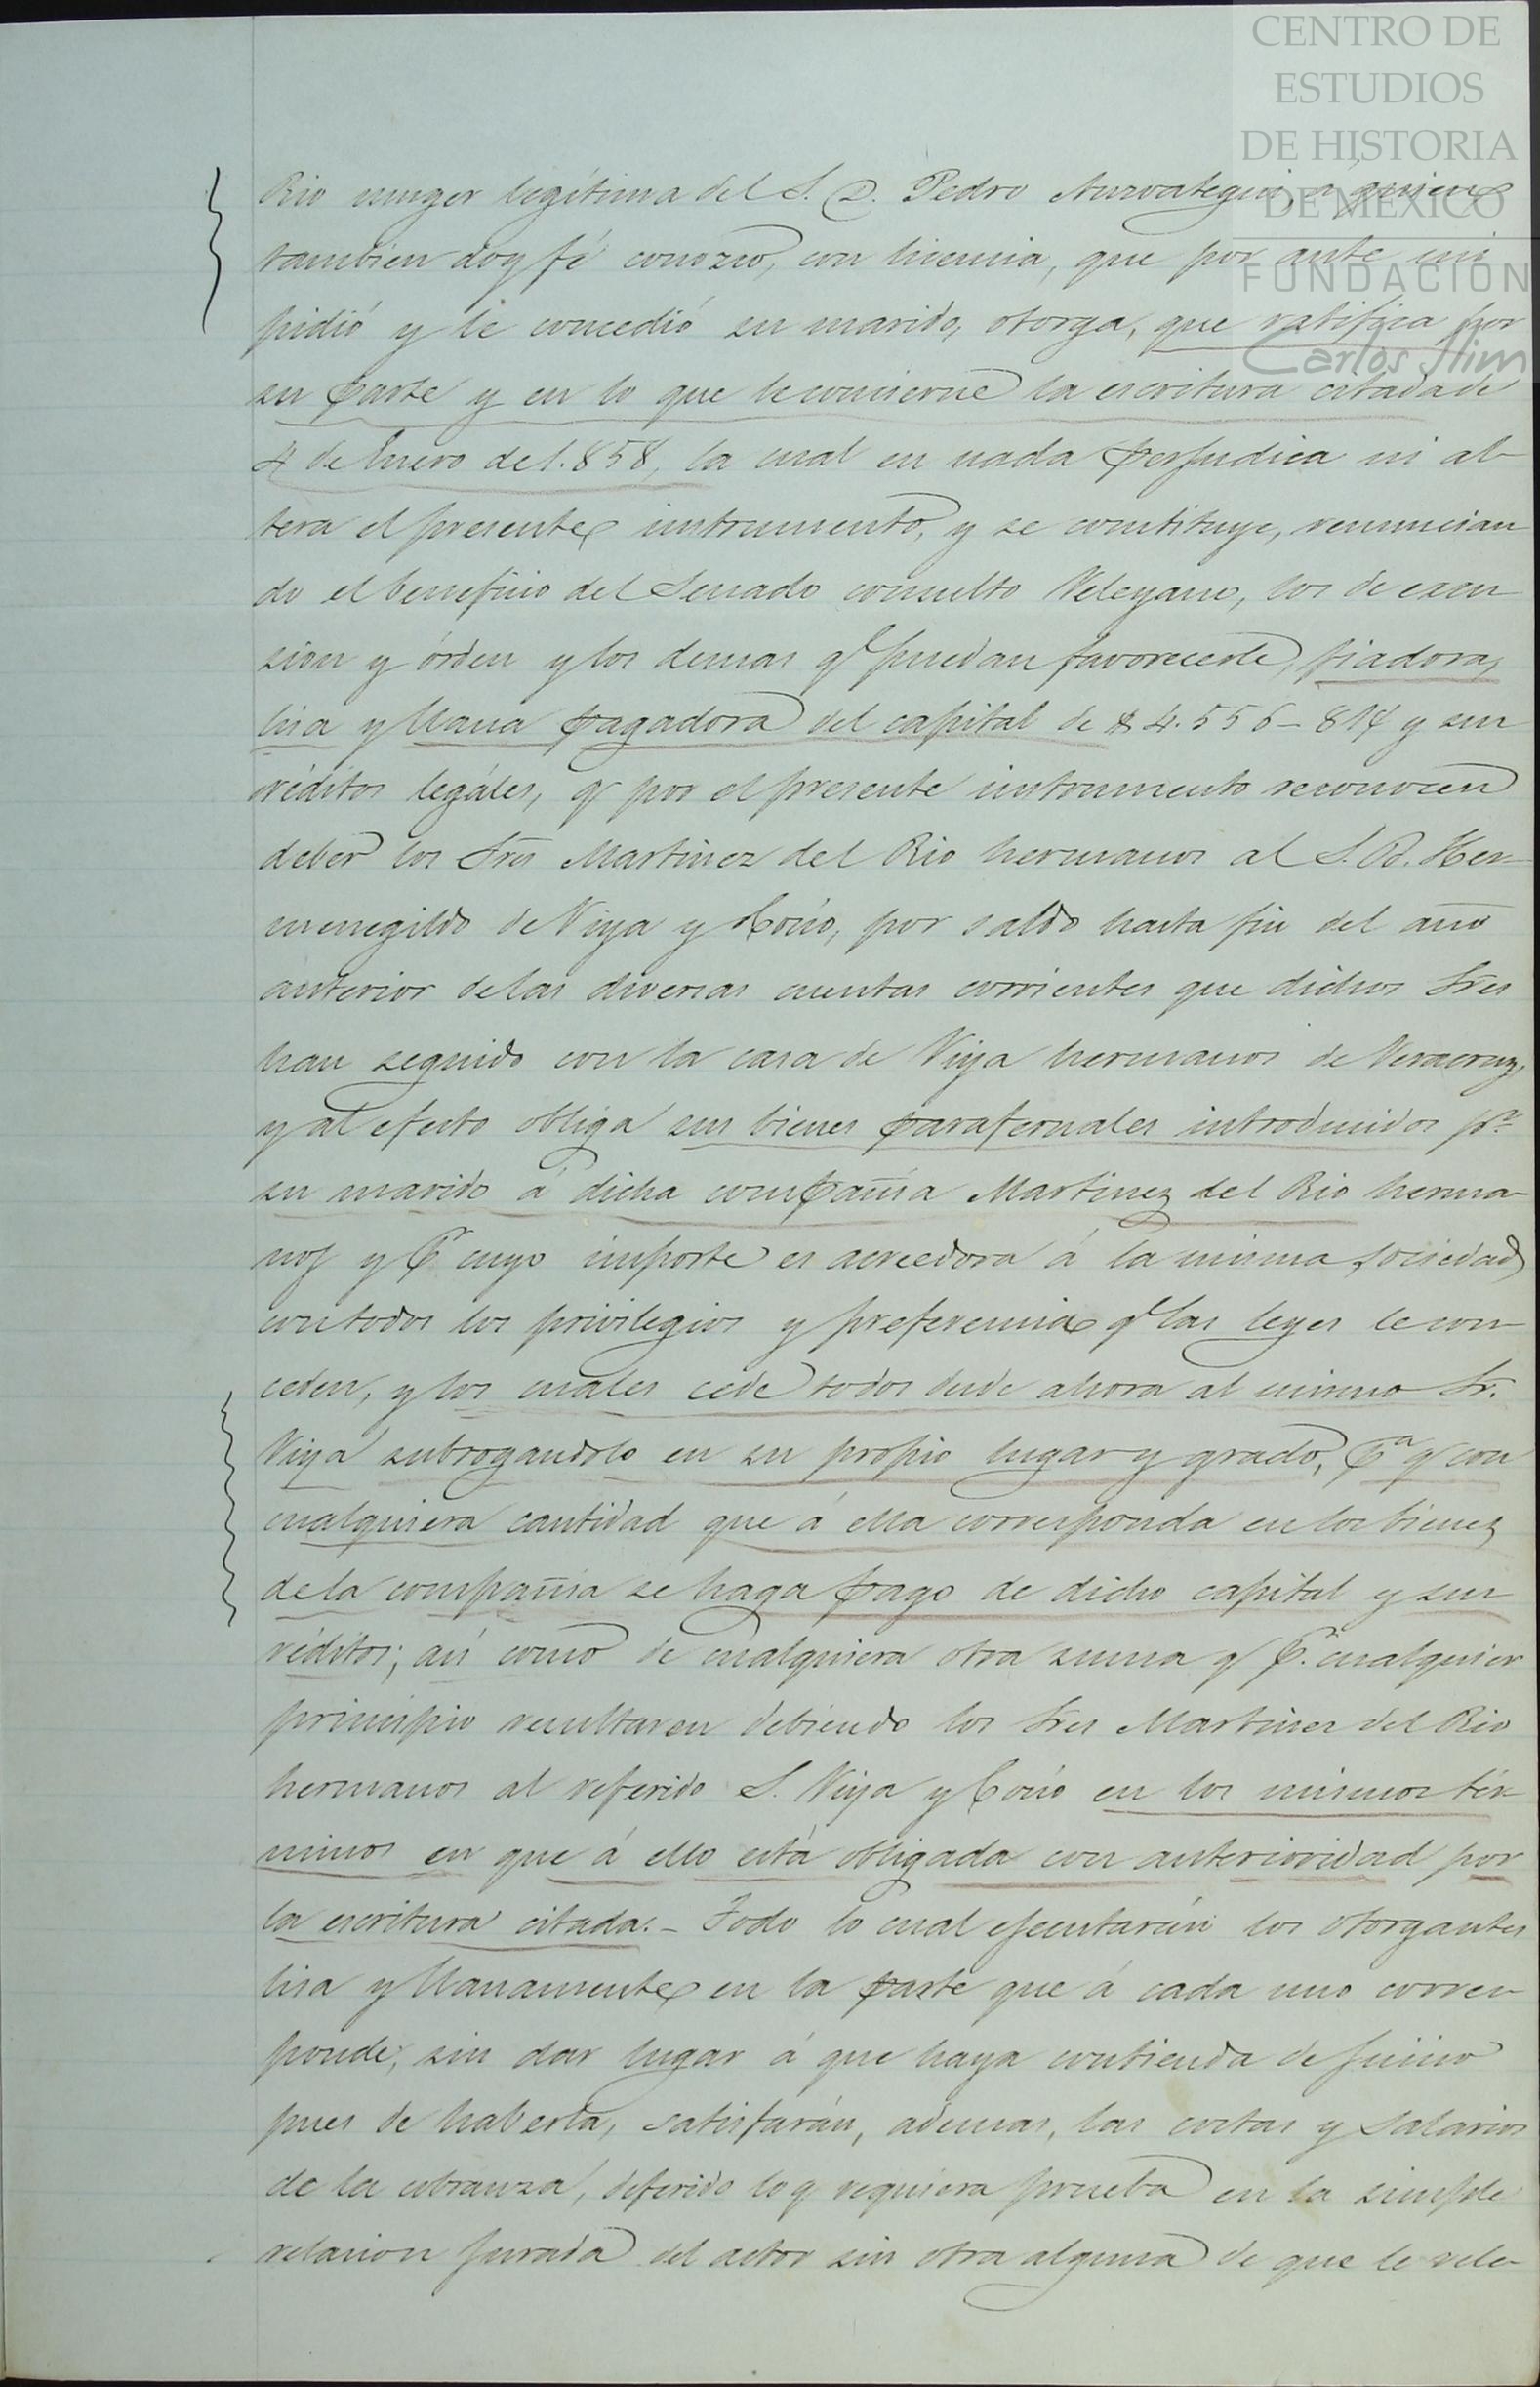 CENTRO DE
ESTUDIOS
DE HISTORIA
DE MÉXICO
FUNDACIÓN
Carlos Slim
Rio muger legítima del S. D. Pedro Anzoategui, a quien
tambien doy fé conozco, con licencia, que por ante mi
pidió y le concedió su marido, otorga, que ratifica por
su parte y en lo que le concierne la escritura citada de
4 de Enero de 1.858, la cual en nada perjudica ni al-
tera el presente instrumento, y se constituye, renuncian
do el beneficio del Senado consulto Veleyano, los de excu
sion y órden y los demas q.e puedan favorecerle, fiadora,
lisa y llana pagadora del capital de $ 4.556-81¼ y sus
réditos legáles, q.e por el presente instrumento reconocen
deber los Sres Martinez del Rio hermanos al S. D. Her-
menegildo de Viya y Cosío, por saldo hasta fin del año
anterior de las diversas cuentas corrientes que dichos Sres
han seguido con la casa de Viya hermanos de Veracruz,
y al efecto obliga sus bienes parafernales introducidos p.r
su marido á dicha compañia Martinez del Rio herma-
nos y P. cuyo importe es acreedora á la misma sociedad
con todos los privilegios y preferencia q.e las leyes le con
ceden, y los cuales cede todos desde ahora al mismo Sr.
Viya subrogandolo en su propio lugar y grado, p.a q.e con
cualquiera cantidad que á ella corresponda en los bienes
de la compañia se haga pago de dicho capital y sus
réditos; así como de cualquiera otra suma q.e p.r cualquier
principio resultaren debiendo los Sres Martinez del Rio
hermanos al referido S. Viya y Cosío en los mismos tér-
minos en que á ello está obligada con anterioridad por
la escritura citada.- Todo lo cual ejecutarán los otorgantes
lisa y llanamente en la parte que á cada uno corres-
ponde, sin dar lugar á que haya contienda de juicio
pues de haberla, satisfarán, ademas, las costas y salarios
de la cobranza, deferido lo q.e requiera prueba en la simple
relacion jurada del actor sin otra alguna de que le rele-